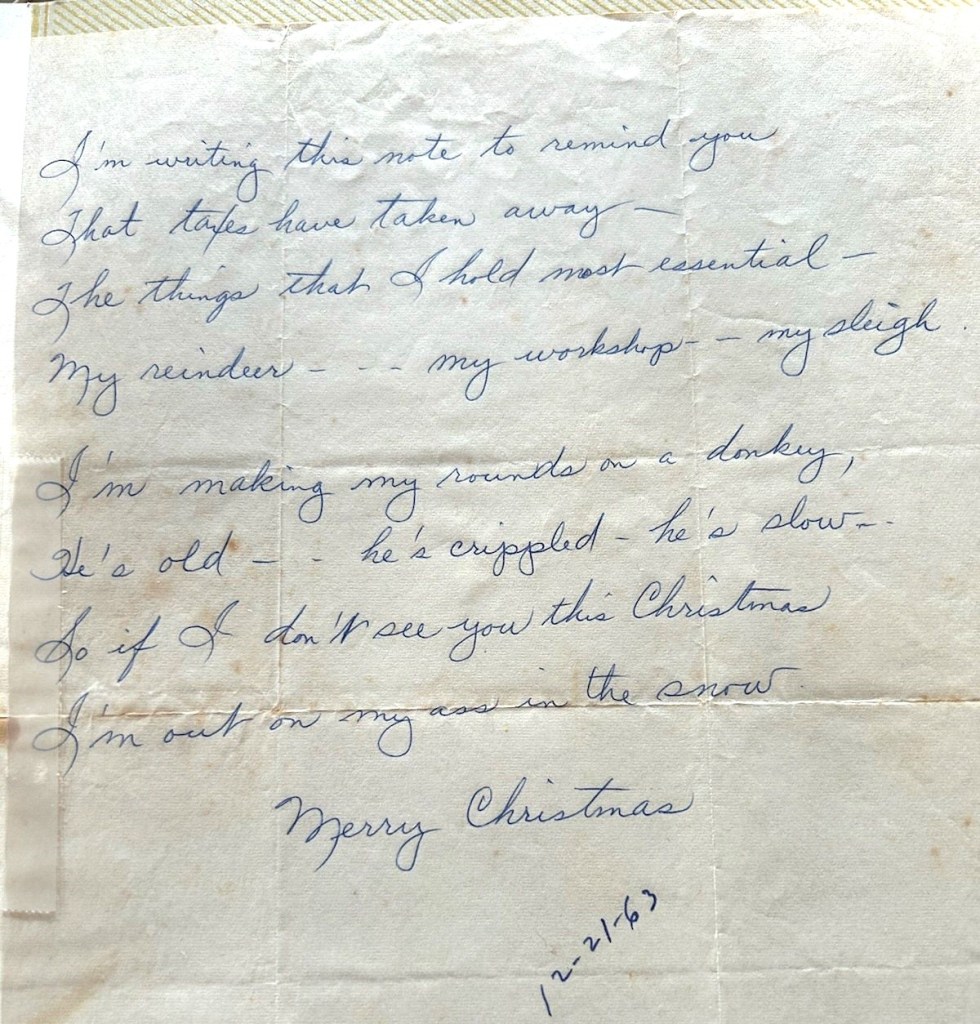 I'm writing this note to remind you
That taxes have taken away —
The things that I hold most essential —
My reindeer - - - my workshop - - my sleigh.
I'm making my rounds on a donkey,
He's old - - he's crippled - he's slow - -
So if I don't see you this Christmas
I'm out on my ass in the snow.
Merry Christmas
12-21-63